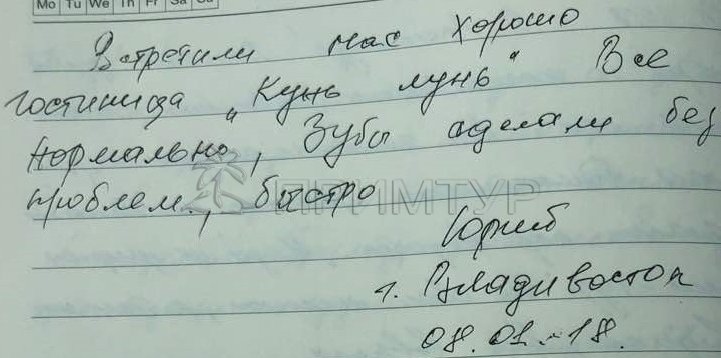 Mo Tu We Th Fr Sa Su
Встретили нас хорошо
гостиница "Кунь лунь" Все
нормально, Зубы сделали без
проблем., быстро
ПРИМТУР
Юрий
г. Владивосток
08.01-18.